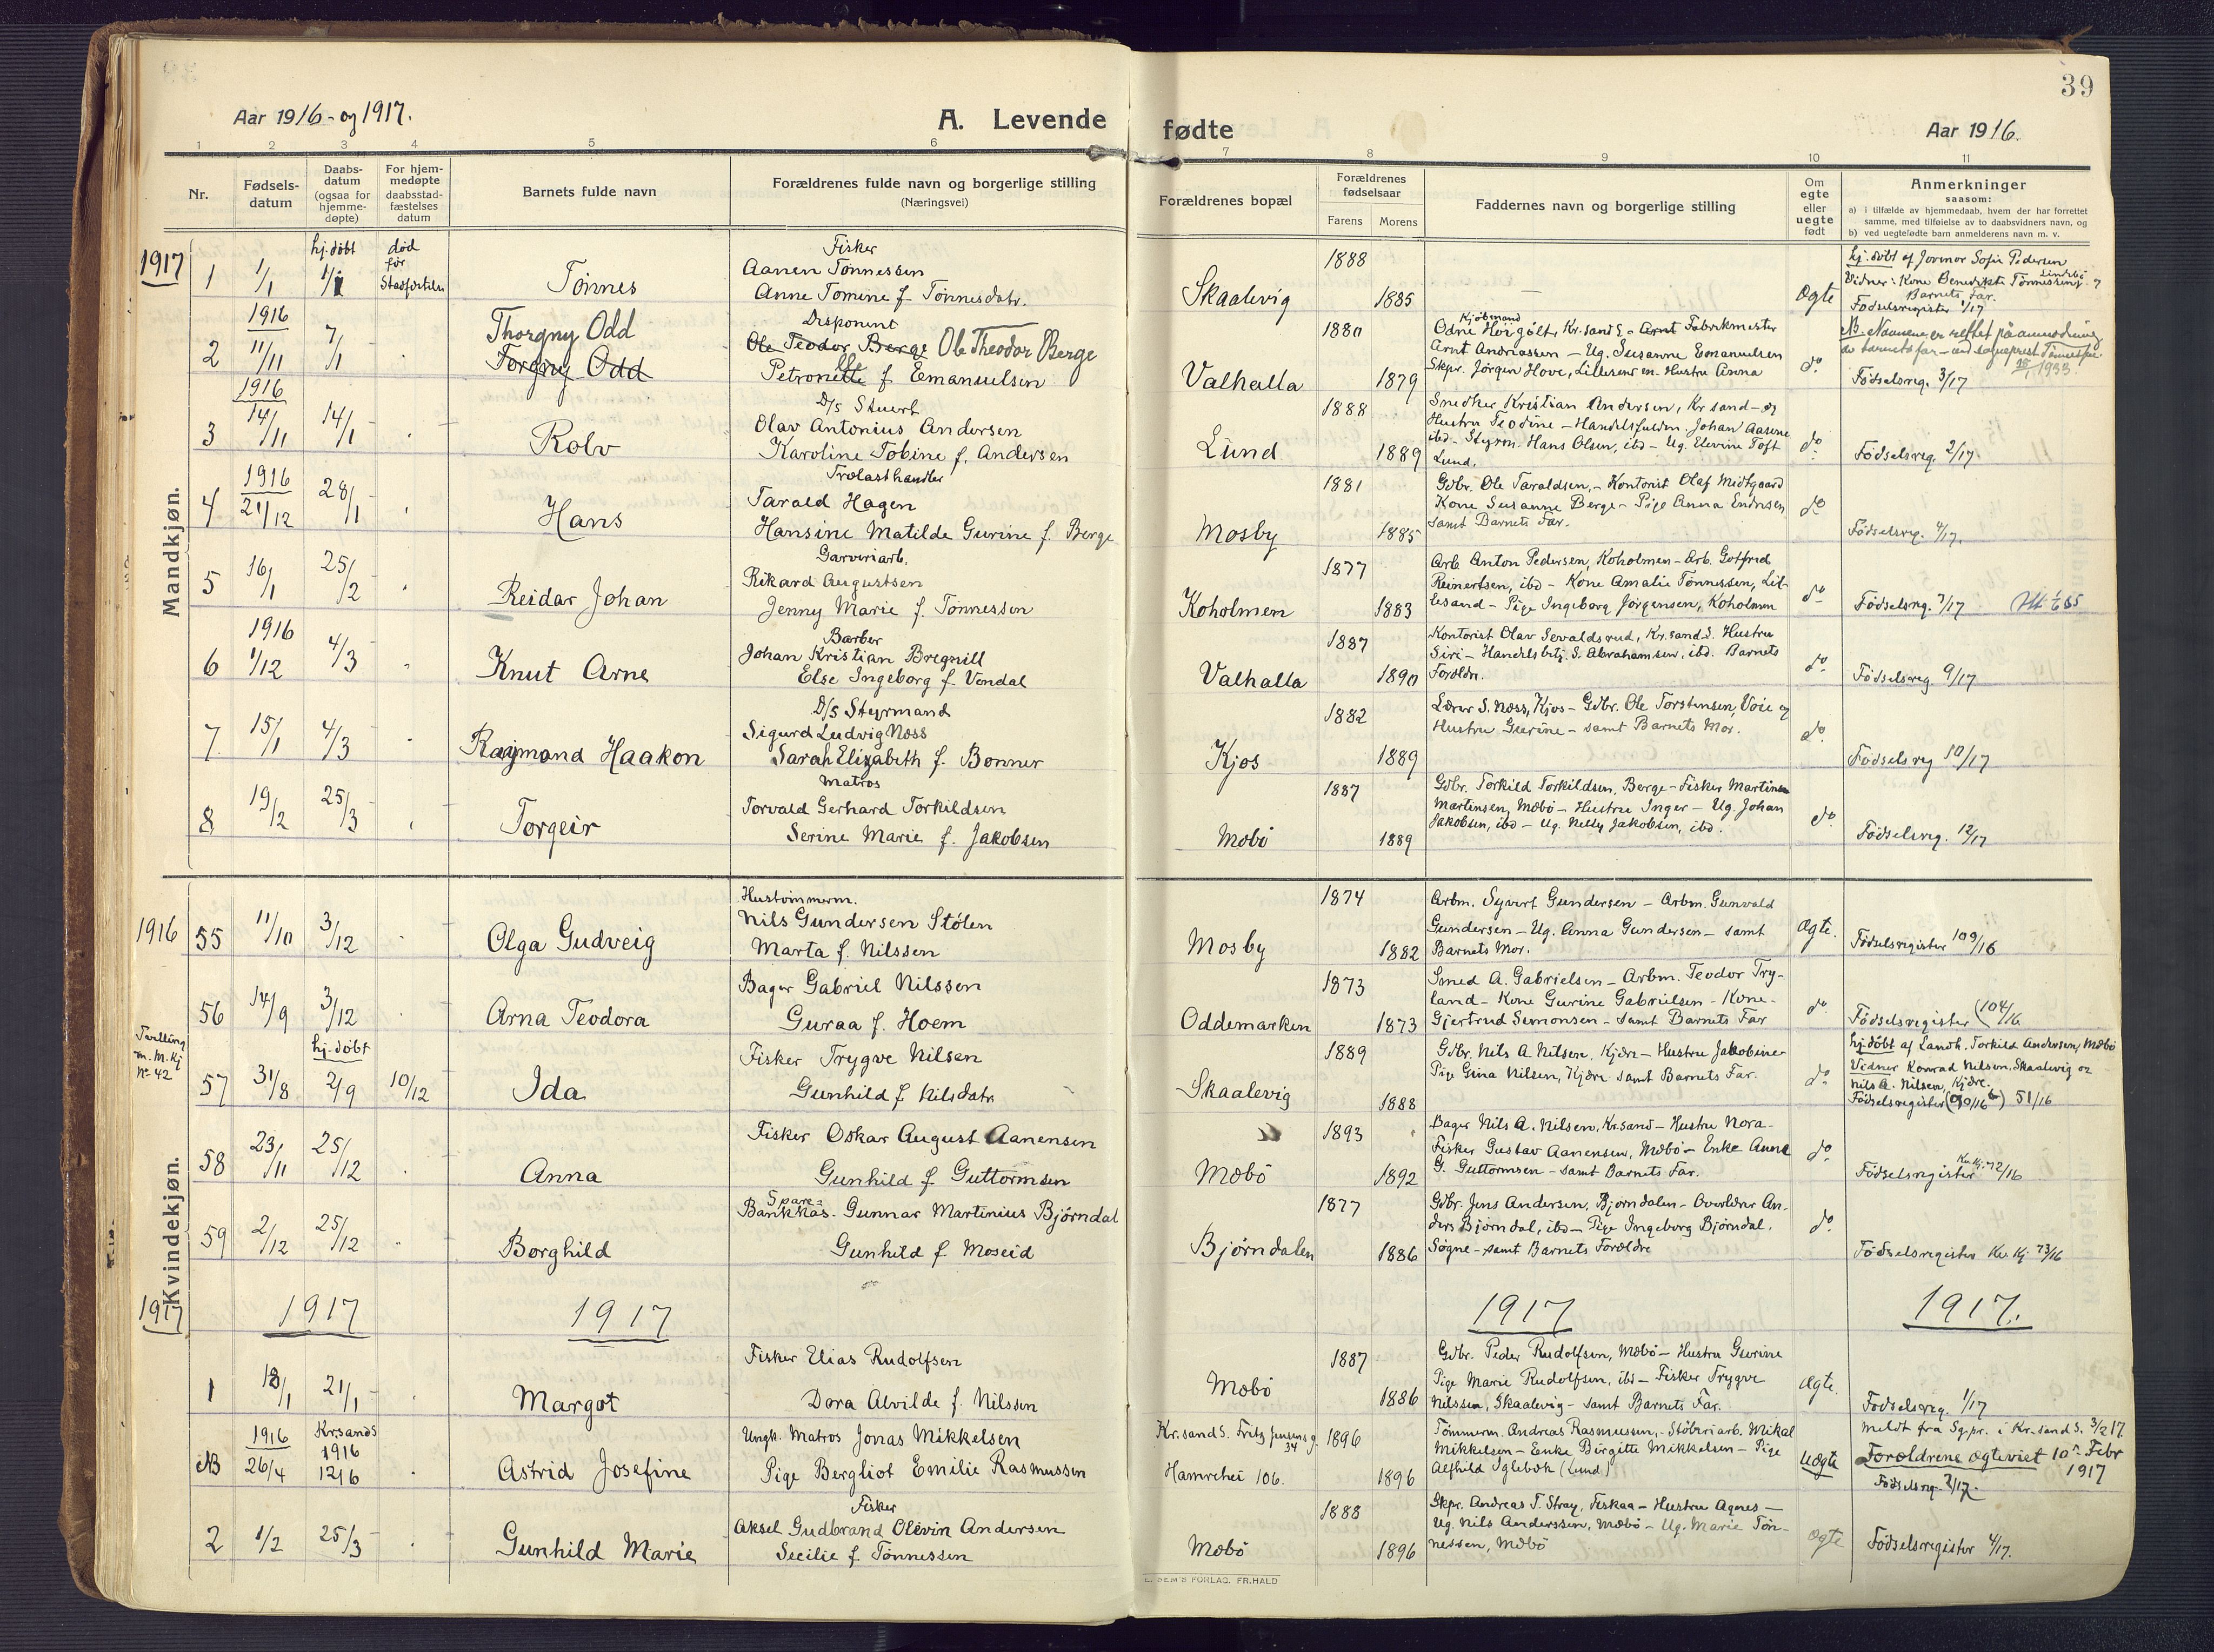 39
Aar 1916 - og 1917.
A. Levende
fødte
Aar 1916.
1 2 3 4 5 6 7 8 9 10 11
Nr.
Fødsels-
datum
Daabs-
datum
(ogsaa for
hjemme-
døpte)
For hjem-
medøpte
daabsstad-
fæstelses
datum
Barnets fulde navn
Forældrenes fulde navn og borgerlige stilling
(Næringsvei)
Forældrenes bopæl
Forældrenes
fødselsaar
Farens
Morens
Faddernes navn og borgerlige stilling
Om
egte
eller
uegte
født
Anmerkninger
saasom:
a) i tilfælde av hjemmedaab, hvem der har forrettet
samme, med tilføielse av to daabsvidners navn, og
b) ved uegtefødte barn anmelderens navn m. v.
Mandkjøn.
1917
1
1/1
hj. døbt
1/1
død
før
Tønnes
Fisker
Aanen Tønnessen
Anne Tomine f. Tønnesdatr.
Skaalevig
1888
1885
—
Ægte
hj. døbt af Jormor Sofie Pedersen
Barnets Far.
Fødselsregister 1/17
2
1916
11/11
7/1
Thorgny Odd
Torgny Odd
Disponent
Ole Teodor Berge Ole Theodor Berge
Petronelle f. Emanuelsen
Valhalla
1880
1879
Kjøbmand
Odne Høigilt, Kr.sand S - Arnt Fabrikmester
Arnt Andriassen - Ug. Susanne Emanuelsen
Skpr. Jørgen Hove, Lillesand en. Hustru Anna
do
NB. Navnene er rettet på anmodning
25/1 1933.
Fødselsreg. 3/17
3
1916
14/11
14/1
Rolv
D/S Stuert
Olav Antonius Andersen
Karoline Tobine f. Andersen
Lund
1888
1889
Snedker Kristian Andersen, Kr sand - og
Hustru Teodine - Handelsfuldm. Johan Aasene
ibd - Styrm. Hans Olsen, ibd - Ug. Elevine Toft
Lund.
do
Fødselsreg. 2/17.
4
1916
21/12
28/1
Hans
Trælasthandler
Tarald Hagen
Hansine Matilde Gurine f. Berge
Mosby
1881
1885
Gdbr. Ole Taraldsen, - Kontorist Olaf Midtgaard
Kone Susanne Berge - Pige Anna Endresen
samt Barnets Far.
do
Fødselsreg. 4/17.
5
16/1
25/2
Reidar Johan
Garveriarb.
Rikard Augustsen
Jenny Marie f. Tønnessen
Koholmen
1877
1883
Arb Anton Pedersen, Koholmen - Arb. Gotfred
Reinertsen, ibd - Kone Amalie Tønnessen, Lil-
lesand - Pige Ingeborg Jørgensen, Koholmen
do
Fødselsreg. 7/17
6
1916
1/12
4/3
Knut Arne
Barber
Johan Kristian Bregnill
Else Ingeborg f. Vendal
Valhalla
1887
1890
Kontorist Olav Sevaldsrud, Kr.sand S. Hustru
Siri - Handelsbtj. S. Abrahamsen, ibd. Barnets
Forældr.
do
Fødselsreg. 9/17
7
15/1
4/3
Raymond Haakon
D/S Styrmand
Sigurd Ludvig Næss
Sarah Elizabeth f. Bonner
Kjos
1882
1889
Lærer S. Næss, Kjos - Gdbr. Ole Torstensen, Voie og
Hustru Gurine - samt Barnets Mor.
do
Fødselsreg 10/17
8
19/2
25/3
Torgeir
Matros
Torvald Gerhard Torkildsen
Serine Marie f. Jakobsen
Mæbø
1887
1889
Gdbr. Torkild Torkildsen, Berge - Fisker Martines
Martinsen, Mæbø - Hustru Inger - Ug. Johan
Jakobsen, ibd - Ug. Nelly Jakobsen, ibd.
do
Fødselsreg. 12/17
Kvindekjøn.
1916
55
11/10
3/12
Olga Gudveig
Hustømmerm.
Nils Gundersen Stølen
Marta f. Nilssen
Mosby
1874
1882
Arbm. Syvert Gundersen - Arbm. Gunvald
Gundersen - Ug. Anna Gundersen - samt
Barnets Mor.
Ægte.
Fødselsregister 109/16
56
14/9
3/12
Arna Teodora
Bager Gabriel Nilssen
Guraa f. Hoem
Oddemarken
1873
1873
Smed A. Gabrielsen - Arbm. Teodor Try-
land - Kone Gurine Gabrielsen - Kone
Gjertrud Simonsen - samt Barnets Far
do
Fødselsregister (104/16
Tvilling
m. M. Kj
No 42
57
31/8
hj. døbt
2/9
10/12
Ida
Fisker Trygve Nilsen
Gunhild f. Nilsdatr
Skaalevig
1889
1888
Gdbr. Nils A. Nilsen, Kjære - Hustru Jakobine
Pige Gina Nilsen, Kjære samt Barnets Far.
do
hj. døbt af Landh. Torkild Andersen, Mæbø
Vidner Konrad Nilsen, Skaalevig og
Nils A. Nilsen, Kjære.
Fødselsregister 51/16
58
23/11
25/12
Anna
Fisker Oskar August Aanensen
Gunhild f Guttormsen
Mæbø
1893
1892
Bager Nils A. Nilsen, Kr.sand - Hustru Nora -
Fisker Gustav Aanensen, Mæbø - Enke Anne
G. Guttormsen - samt Barnets Far.
do
Fødselsregister Kv. Kj. 72/16
59
2/12
25/12
Borghild
Spare-
Bankkas. Gunnar Martinius Bjørndal
Gunhild f. Moseid
Bjørndalen
1877
1886
Gdbr. Jens Andersen, Bjørndalen - Overlærer An-
ders Bjørndal, ibd - Pige Ingeborg Bjørndal,
Søgne - samt Barnets Forældre
do
Fødselsregister Kv. Kj 73/16
1917
1917
1917
1917
1917.
1
18/1
21/1
Margot
Fisker Elias Rudolfsen
Dora Alvilde f. Nilsson
Mæbø
1887
1886
Gdbr. Peder Rudolfsen, Mæbø - Hustru Gurine
Pige Marie Rudolfsen, ibd - Fisker Trygve
Nilssen, Skaalevig - samt Barnets Far.
Ægte.
Fødselsreg. 1/17
NB
1916
26/4
Kr.sands
1916
12/6
Astrid Josefine
Ungk. Matros Jonas Mikkelsen
Pige Bergliot Emilie Rasmussen
Kr.sand S. Fritz Jensens g. 34
Hamrehei 106.
1896
1896
Tømmerm. Andreas Rasmussen, - Støberiarb. Mikal
Mikkelsen - Enke Birgitte Mikkelsen - Pige
Alfhild Eglebæk (Lund)
Uægte
meldt fra Sg.pr. i Kr.sand S. 3/2 17.
Forældrene ægteviet 10de Febr
1917
Fødselsreg. 2/17.
2
1/2
25/3
Gunhild Marie
Fisker
Aksel Gudbrand Olevin Andersen
Secilie f. Tønnessen
Mæbø
1888
1896
Skpr. Andreas T. Stray, Fiskaa - Hustru Agnes -
Ug. Nils Anderssen, Mæbø - Ug. Marie Tøn-
nessen, Mæbø
Ægte
Fødselsregister 4/17.
FORLAG. FR. HALD